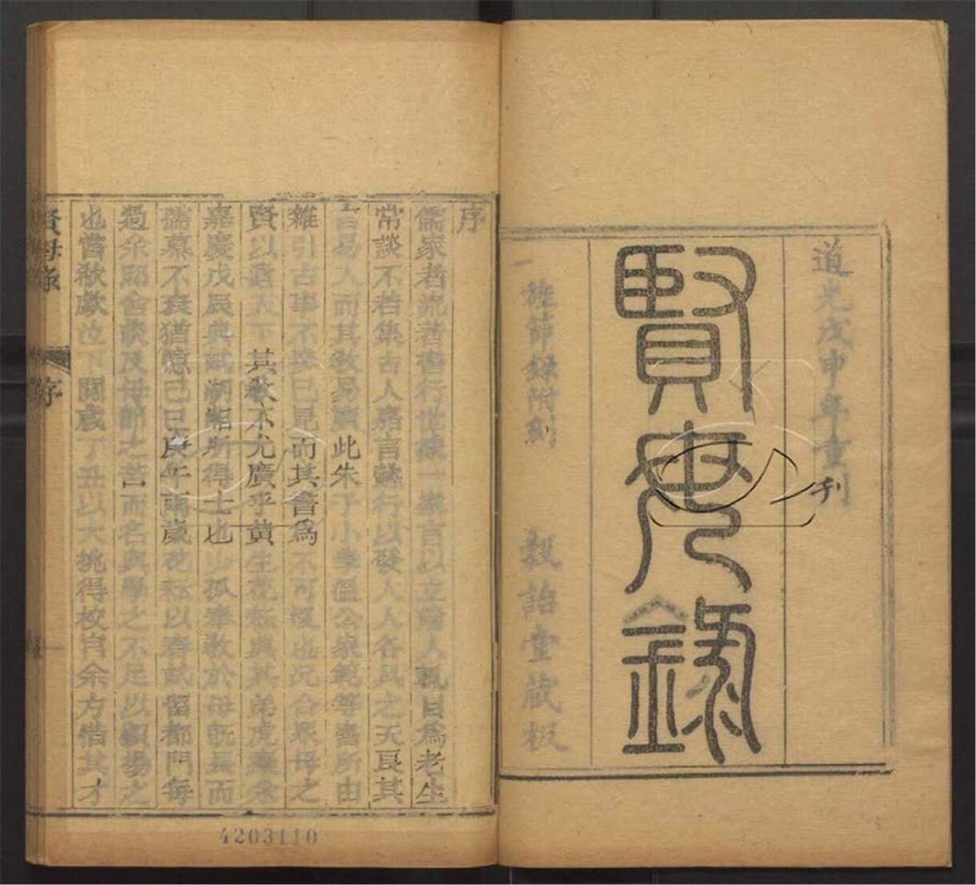 道光戊申年重刊
賢母錄
旌節錄附刻 穀詒堂藏板
序
儒家者流著書行世議一業言以立論人執目為老生
常談不若集古人嘉言懿行以發人人各具之天良其
言易入而其教易廣此朱子小學溫公家範等書所由
雜引古事不參己見而其書為不可沒也況合眾母之
賢以喬天下其教不尤廣乎黃生花耘與其弟虎癡余
嘉慶戊辰典試湖湘所得士也少孤奉教於母既長而
孺慕不衰猶憶己巳庚午兩歲花耘以春試留都門每
過余邸舍談及母節之苦而名與學之不足以顯揚之
也嘗欷歔泣下閱歲丁丑以大挑得校官余方惜其才
賢母錄 序
4203110